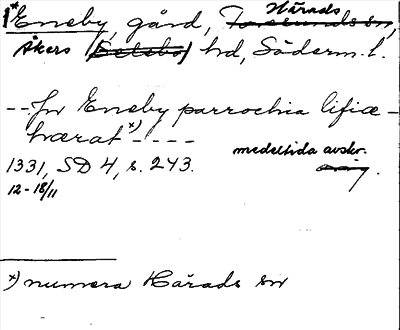 *Eneby, gård, Härads
Åkers (Selebo) hd, Söderm. l.
--Jn Eneby parrochia lific-
hwærat *) ----
medeltida avskr.
1331, SD 4, s. 243.
12-18/11
*) numera Härads sn